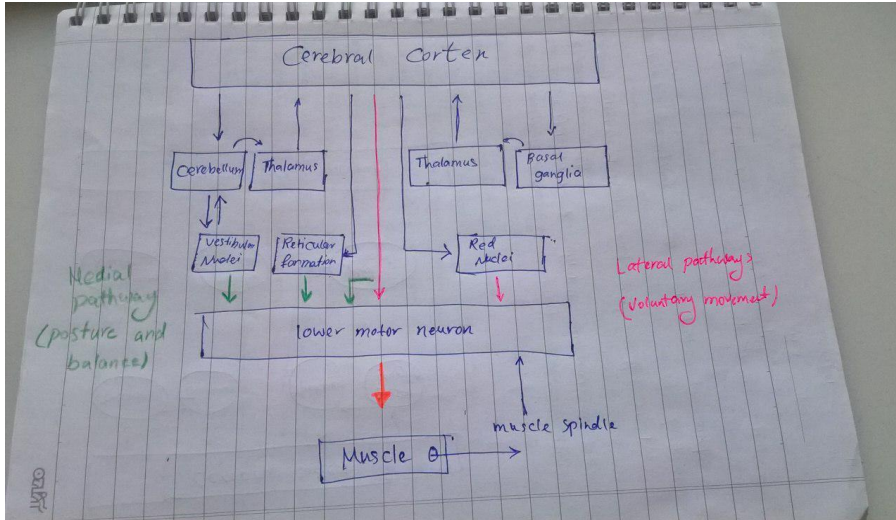 Cerebral Corten
Cerebellum
Thalamus
Thalamus
Basal
ganglia
Vestibular
Nuclei
Reticular
formation
Red
Nuclei
Medial
pathway
(posture and
balance)
Lateral pathways
(voluntary movement)
lower motor neuron
muscle spindle
Muscle